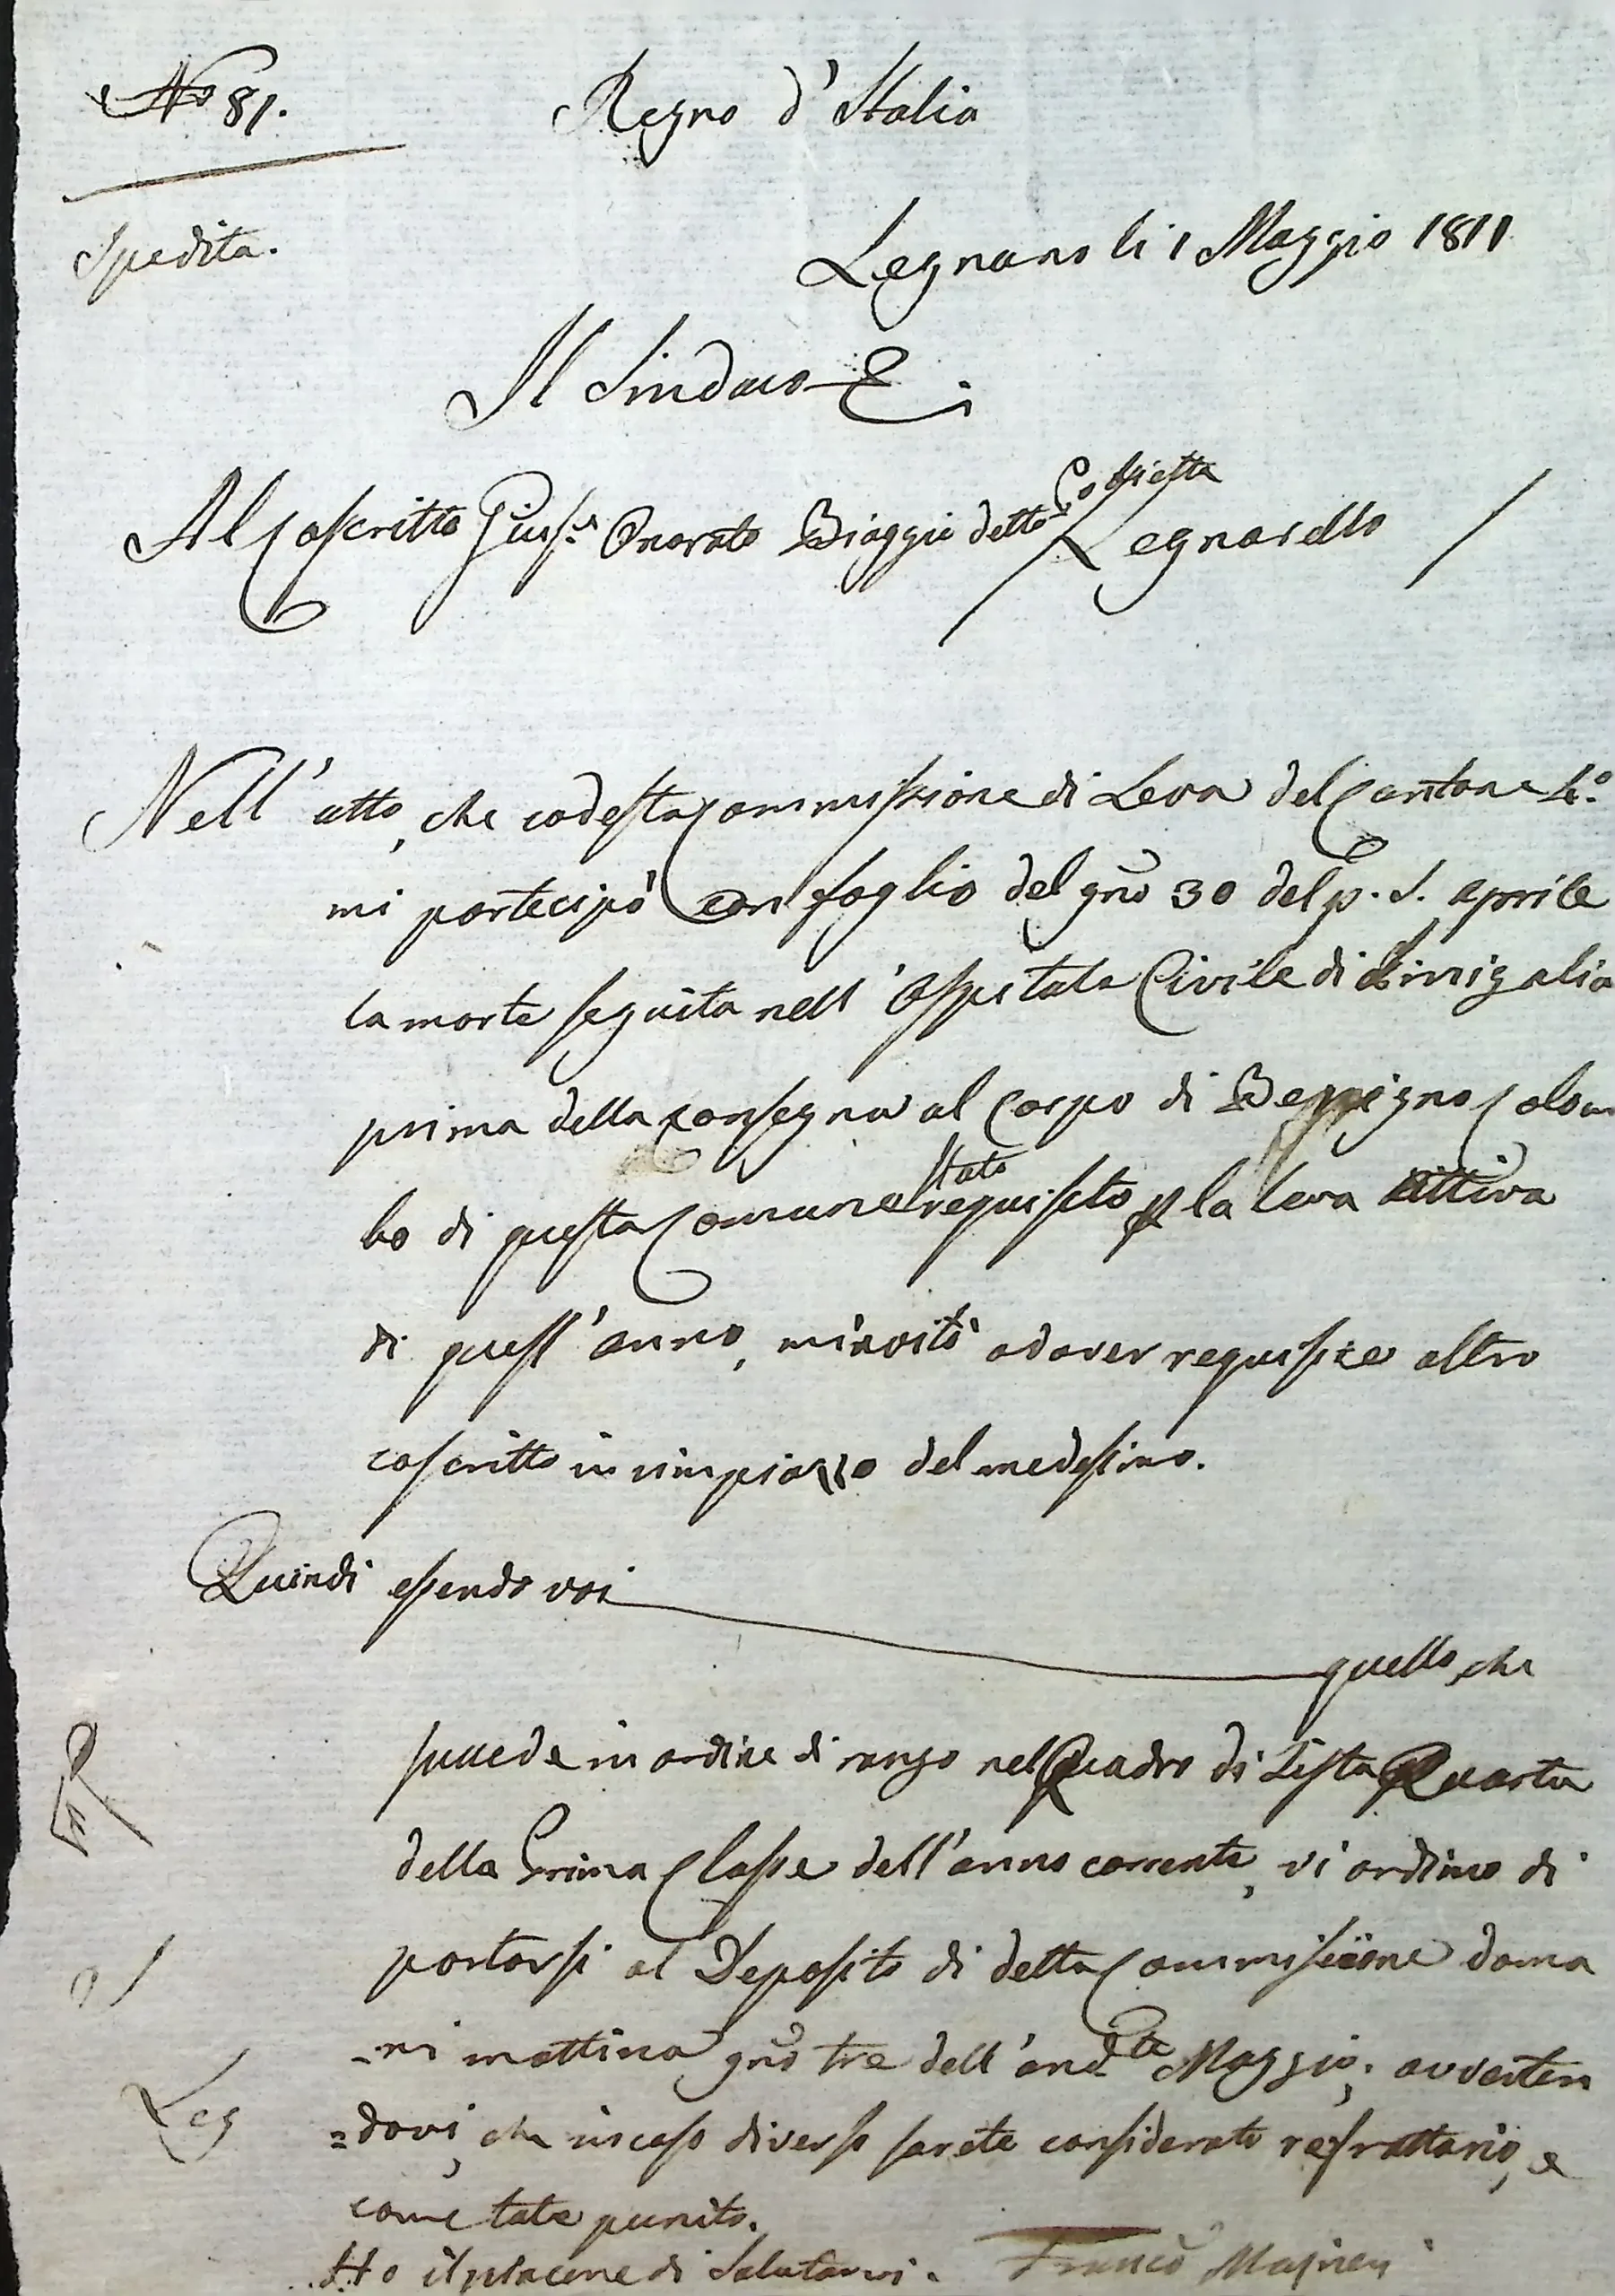 No 81.
Regno d'Italia
Spedita.
Legnano li 1 Maggio 1811
Il Sindaco
Al Coscritto Gius.e Onorato Biaggio detto
Legnarello
Nell'atto, che codesta Commissione di Leva del Cantone 4.o
mi partecipò con foglio del gno 30 del p. s. Aprile
la morte seguita nell'Ospitale Civile di Sinigalia
prima della consegna al Corpo di Beppigno Colom
bo di questa Comune stato requisito p la leva Attiva
di quest'anno, m'invitò ad aver requisire altro
coscritto in rimpiazzo del medesimo.
Quindi essendo voi quello, che
succede in ordine di rango nel Quadro di Lista Quarta
della Prima Classe dell'anno corrente, vi ordino di
portarsi al Deposito di detta Commissione doma
-ni mattina gno tre dell'and.te Maggio; avverten
=dovi, che in caso diverso sarete considerato refrattario, e
come tale punito.
Leg
Ho il piacere di Salutarvi.